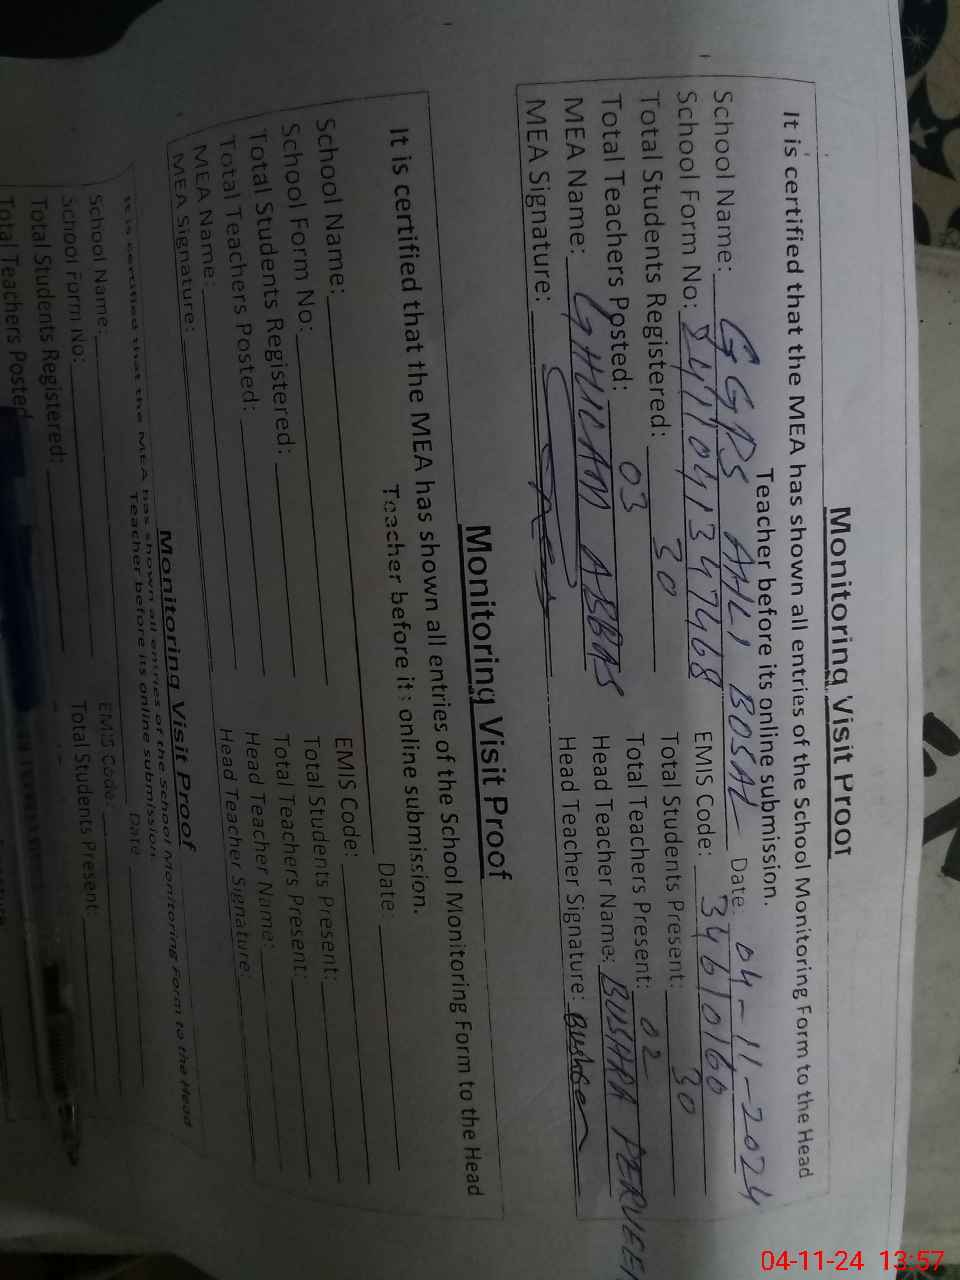 Monitoring Visit Proof
It is certified that the MEA has shown all entries of the School Monitoring Form to the Head
Teacher before its online submission.
School Name: GGPS AHLI BOSAL Date: 04-11-2024
School Form No: EMIS Code: 34610160
Total Students Registered: 30 Total Students Present: 30
Total Teachers Posted: 03 Total Teachers Present: 02
MEA Name: GHULAM ABBAS Head Teacher Name: BUSHRA PERVEEN
MEA Signature: Head Teacher Signature:
Monitoring Visit Proof
It is certified that the MEA has shown all entries of the School Monitoring Form to the Head
Teacher before its online submission.
School Name: Date:
School Form No: EMIS Code:
Total Students Registered: Total Students Present:
Total Teachers Posted: Total Teachers Present:
MEA Name: Head Teacher Name:
MEA Signature: Head Teacher Signature:
Monitoring Visit Proof
It is certified that the MEA has shown all entries of the School Monitoring Form to the Head
Teacher before its online submission
School Name: Date
School Form No: EMIS Code:
Total Students Registered: Total Students Present:
Total Teachers Posted
04-11-24 13:57